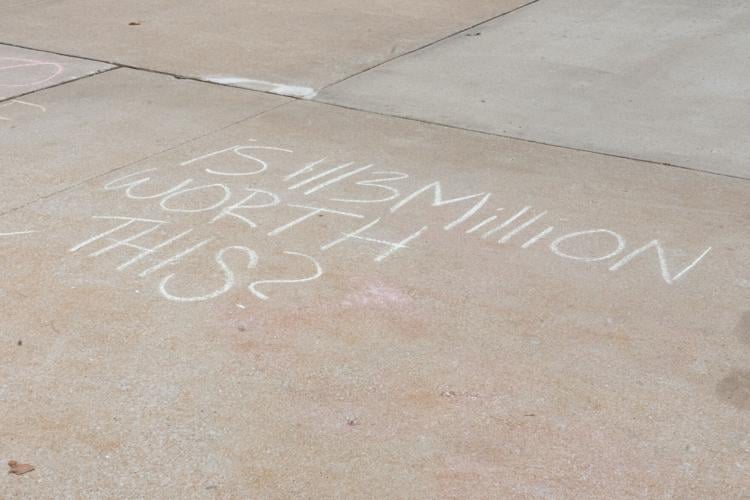 iS 1113 MilliON
WORTH
THIS?